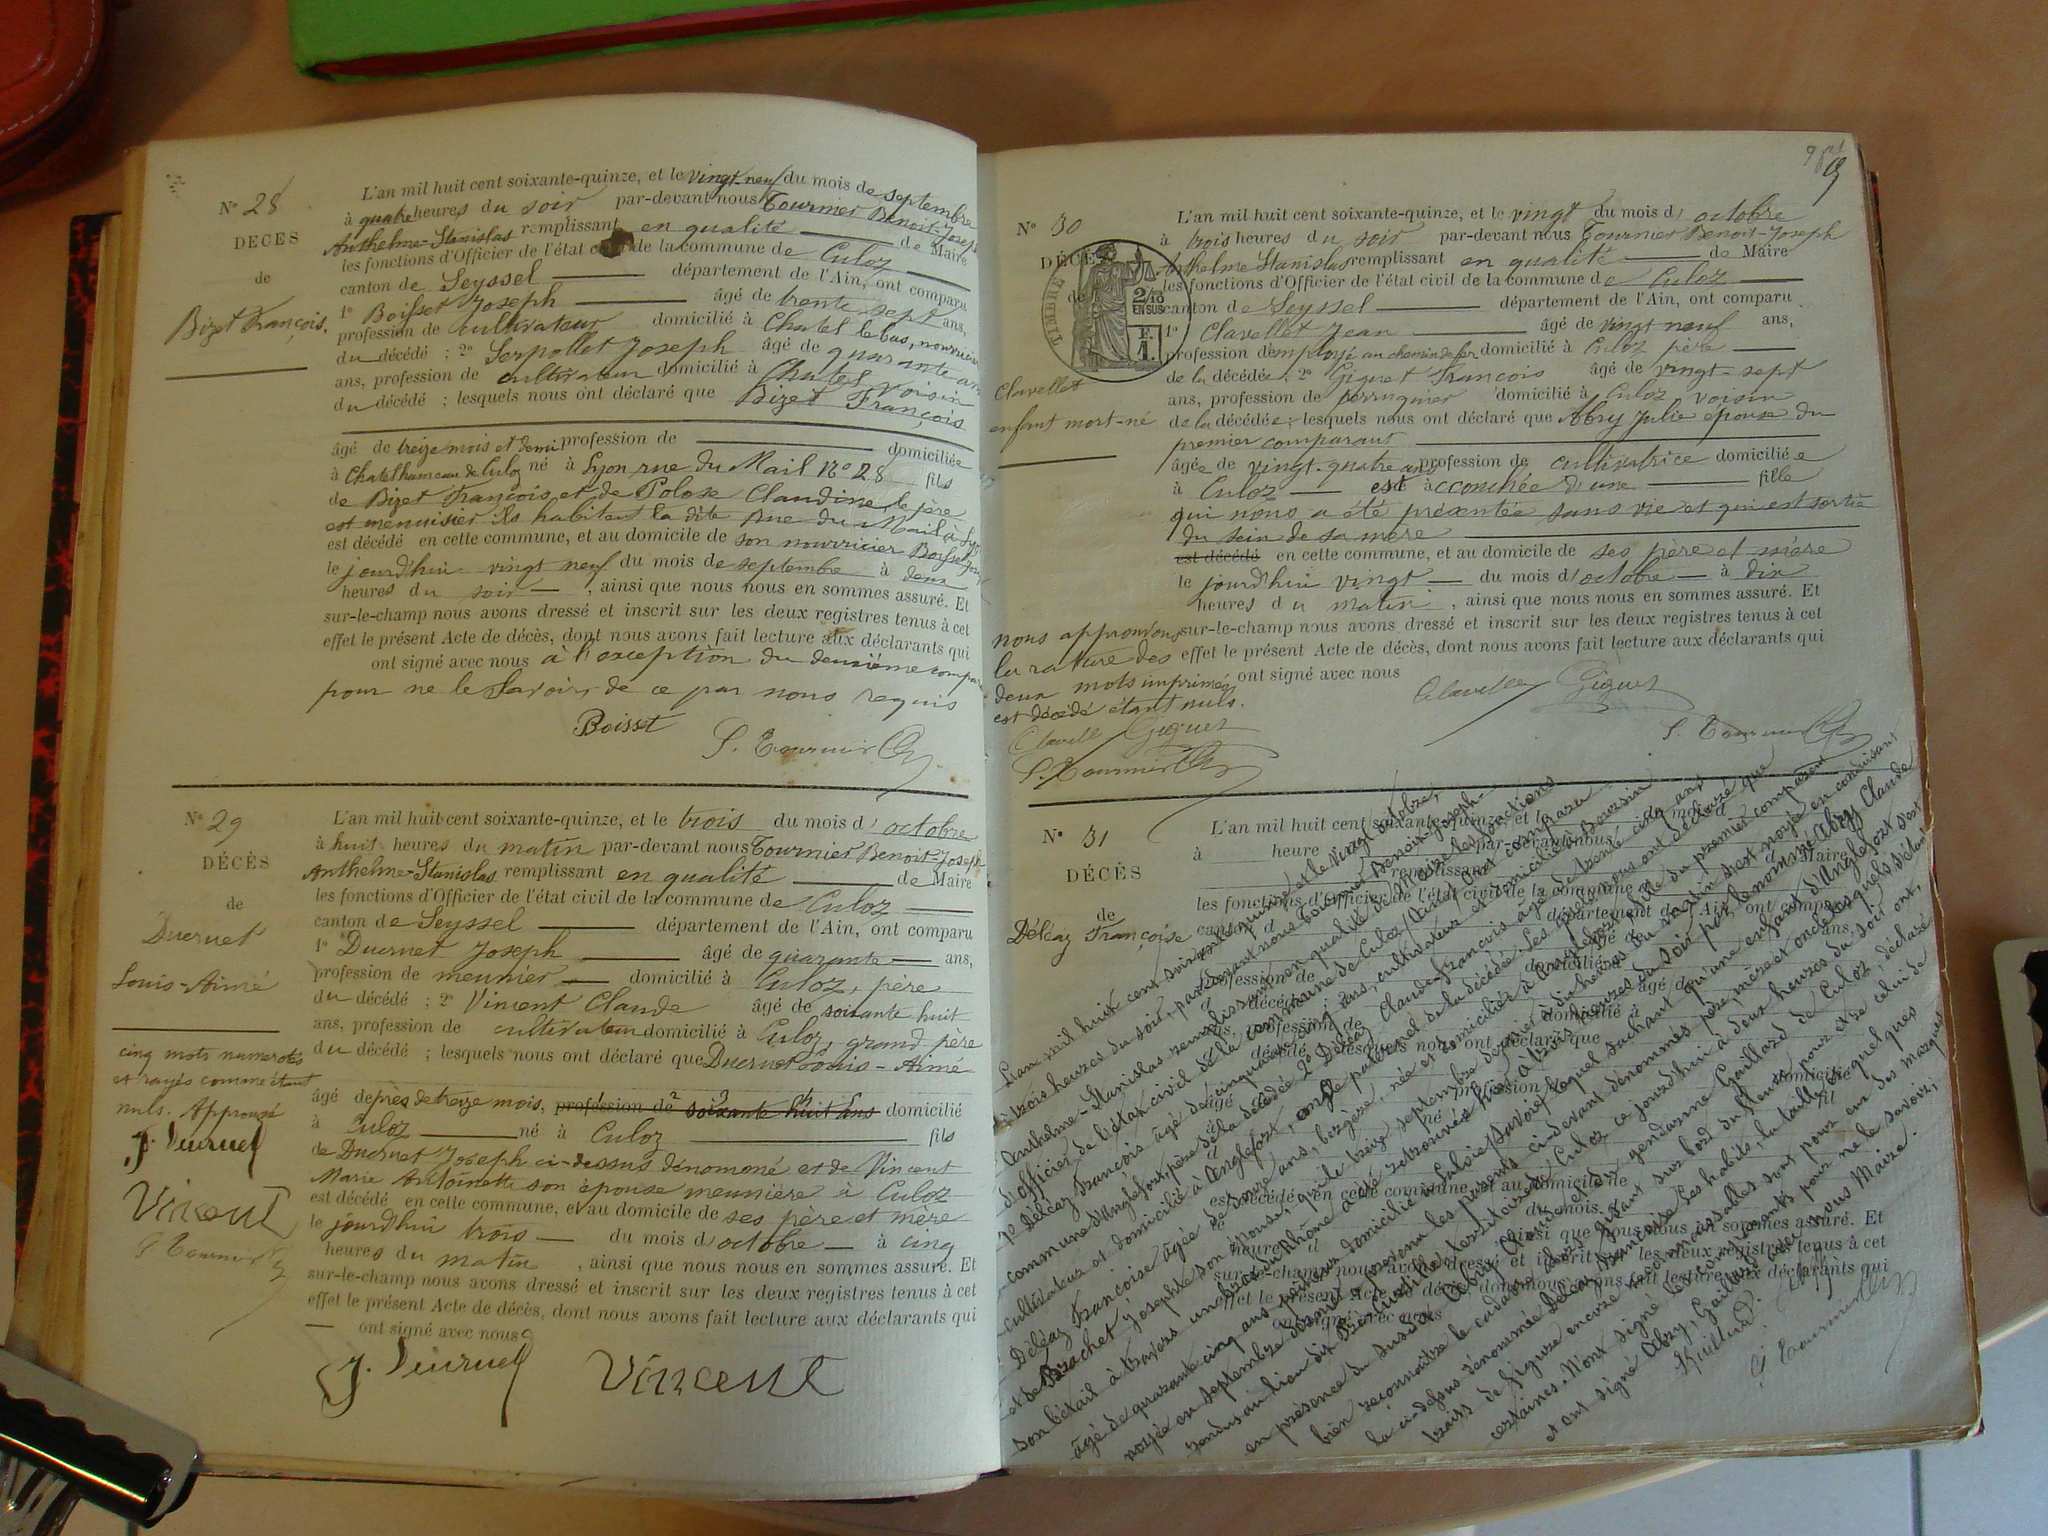 N° 28
DÉCÈS
de
Bizet François.
L'an mil huit cent soixante-quinze, et le vingt-neuf du mois de septembre
à quatre heures du soir par-devant nous Tournier Benoit-Joseph
Anthelme-Stanislas remplissant en qualité de Maire
les fonctions d'Officier de l'état civil de la commune de Culoz
canton de Seyssel département de l'Ain, ont comparu
1° Boisset Joseph âgé de trente sept ans,
profession de cultivateur domicilié à Chatel le bas, nourricier
du décédé ; 2° Serpollet Joseph âgé de quarante un
ans, profession de cultivateur domicilié à Chatel voisin
du décédé ; lesquels nous ont déclaré que Bizet François
âgé de treize mois et demi profession de domiciliée
à Chatel hameau de Culoz né à Lyon rue du Mail N° 28 fils
de Bizet François et de Polose Claudine, le père
est menuisier ils habitent la dite Rue du Mail à Lyon
est décédé en cette commune, et au domicile de son nourricier Boisset
le jourd'hui vingt neuf du mois de septembre à deux
heures du soir , ainsi que nous nous en sommes assuré. Et
sur-le-champ nous avons dressé et inscrit sur les deux registres tenus à cet
effet le présent Acte de décès, dont nous avons fait lecture aux déclarants qui
ont signé avec nous à l'exception du deuxième
pour ne le Savoir, de ce par nous requis
Boisset
S. Tournier
N° 29
DÉCÈS
de
Ducruet
Louis-Aimé
cinq mots numerotés
et rayés comme étant
nuls. Approuvé
J. Ducruet
Vincent
S. Tournier
L'an mil huit cent soixante-quinze, et le trois du mois d'octobre
à huit heures du matin par-devant nous Tournier Benoit-Joseph
Anthelme-Stanislas remplissant en qualité de Maire
les fonctions d'Officier de l'état civil de la commune de Culoz
canton de Seyssel département de l'Ain, ont comparu
1° Ducruet Joseph âgé de quarante ans,
profession de meunier domicilié à Culoz, père
du décédé ; 2° Vincent Claude âgé de soixante huit
ans, profession de cultivateur domicilié à Culoz, grand père
du décédé ; lesquels nous ont déclaré que Ducruet Louis-Aimé
âgé de près de treize mois, profession de soixante huit ans domicilié
à Culoz né à Culoz fils
de Ducruet Joseph ci-dessus dénommé et de Vincent
Marie Antoinette son épouse meunière à Culoz
est décédé en cette commune, et au domicile de ses père et mère
le jourd'hui trois du mois d'octobre à cinq
heures du matin , ainsi que nous nous en sommes assuré. Et
sur-le-champ nous avons dressé et inscrit sur les deux registres tenus à cet
effet le présent Acte de décès, dont nous avons fait lecture aux déclarants qui
ont signé avec nous
J. Ducruet Vincent
N° 30
DÉCÈS
de
TIMBRE
2/10
EN SUS
F.
1.
Clavellet
enfant mort-né
L'an mil huit cent soixante-quinze, et le vingt du mois d'octobre
à trois heures du soir par-devant nous Tournier Benoit-Joseph
Anthelme Stanislas remplissant en qualité de Maire
les fonctions d'Officier de l'état civil de la commune de Culoz
canton de Seyssel département de l'Ain, ont comparu
1° Clavellet Jean âgé de vingt neuf ans,
profession d'employé au chemin de fer domicilié à Culoz père
de la décédée ; 2° Giguet François âgé de vingt-sept
ans, profession de perruquier domicilié à Culoz voisin
de la décédée ; lesquels nous ont déclaré que Abry Julie épouse du
premier comparant
âgée de vingt-quatre ans profession de cultivatrice domiciliée
à Culoz est accouchée d'une fille
qui nous a été présentée sans vie et qui est sortie
du sein de sa mère
est décédé en cette commune, et au domicile de ses père et mère
le jourd'hui vingt du mois d'octobre à dix
heures du matin , ainsi que nous nous en sommes assuré. Et
sur-le-champ nous avons dressé et inscrit sur les deux registres tenus à cet
effet le présent Acte de décès, dont nous avons fait lecture aux déclarants qui
ont signé avec nous
nous approuvons
la rature des
deux mots imprimés
est décédé étant nuls.
Clavellet Giguet
S. Tournier
Clavellet Giguet
S. Tournier
N° 31
DÉCÈS
de
Déléaz Françoise
L'an mil huit cent soixante quinze et le vingt octobre,
à trois heures du soir, par devant nous Tournier Benoit-Joseph-
Anthelme-Stanislas remplissant en qualité de Maire les fonctions
d'officier de l'état civil de la commune de Culoz (Ain) ont comparu
1° Déléaz François âgé de cinquante cinq ans, cultivateur domicilié à
commune d'Anglefort, père de la décédée 2° Déléaz Claude François âgé de trente cinq ans
cultivateur et domicilié à Anglefort, oncle paternel de la décédée. Lesquels nous ont déclaré que
Déléaz Françoise âgée de ans, bergère, née et domiciliée à Anglefort, fille du premier comparant
et de Brachet Josephte son épouse, qui le treize septembre dernier à dix heures du matin s'est noyée en conduisant
son bétail à travers un bras du Rhône a été retrouvée à trois heures du soir par le nommé Abry Claude
âgé de quarante cinq ans
en présence du susdit Abry Claude et du gendarme Gaillard de Culoz, déclaré
bien reconnaître le cadavre
la ci-dessus dénommée Déléaz Françoise. Ses habits, sa taille et quelques
traits de figure encore reconnaissables sont pour eux des marques
certaines. N'ont signé les comparants pour ne le savoir,
et ont signé Abry, Gaillard avec nous Maire.
Abry
S. Tournier